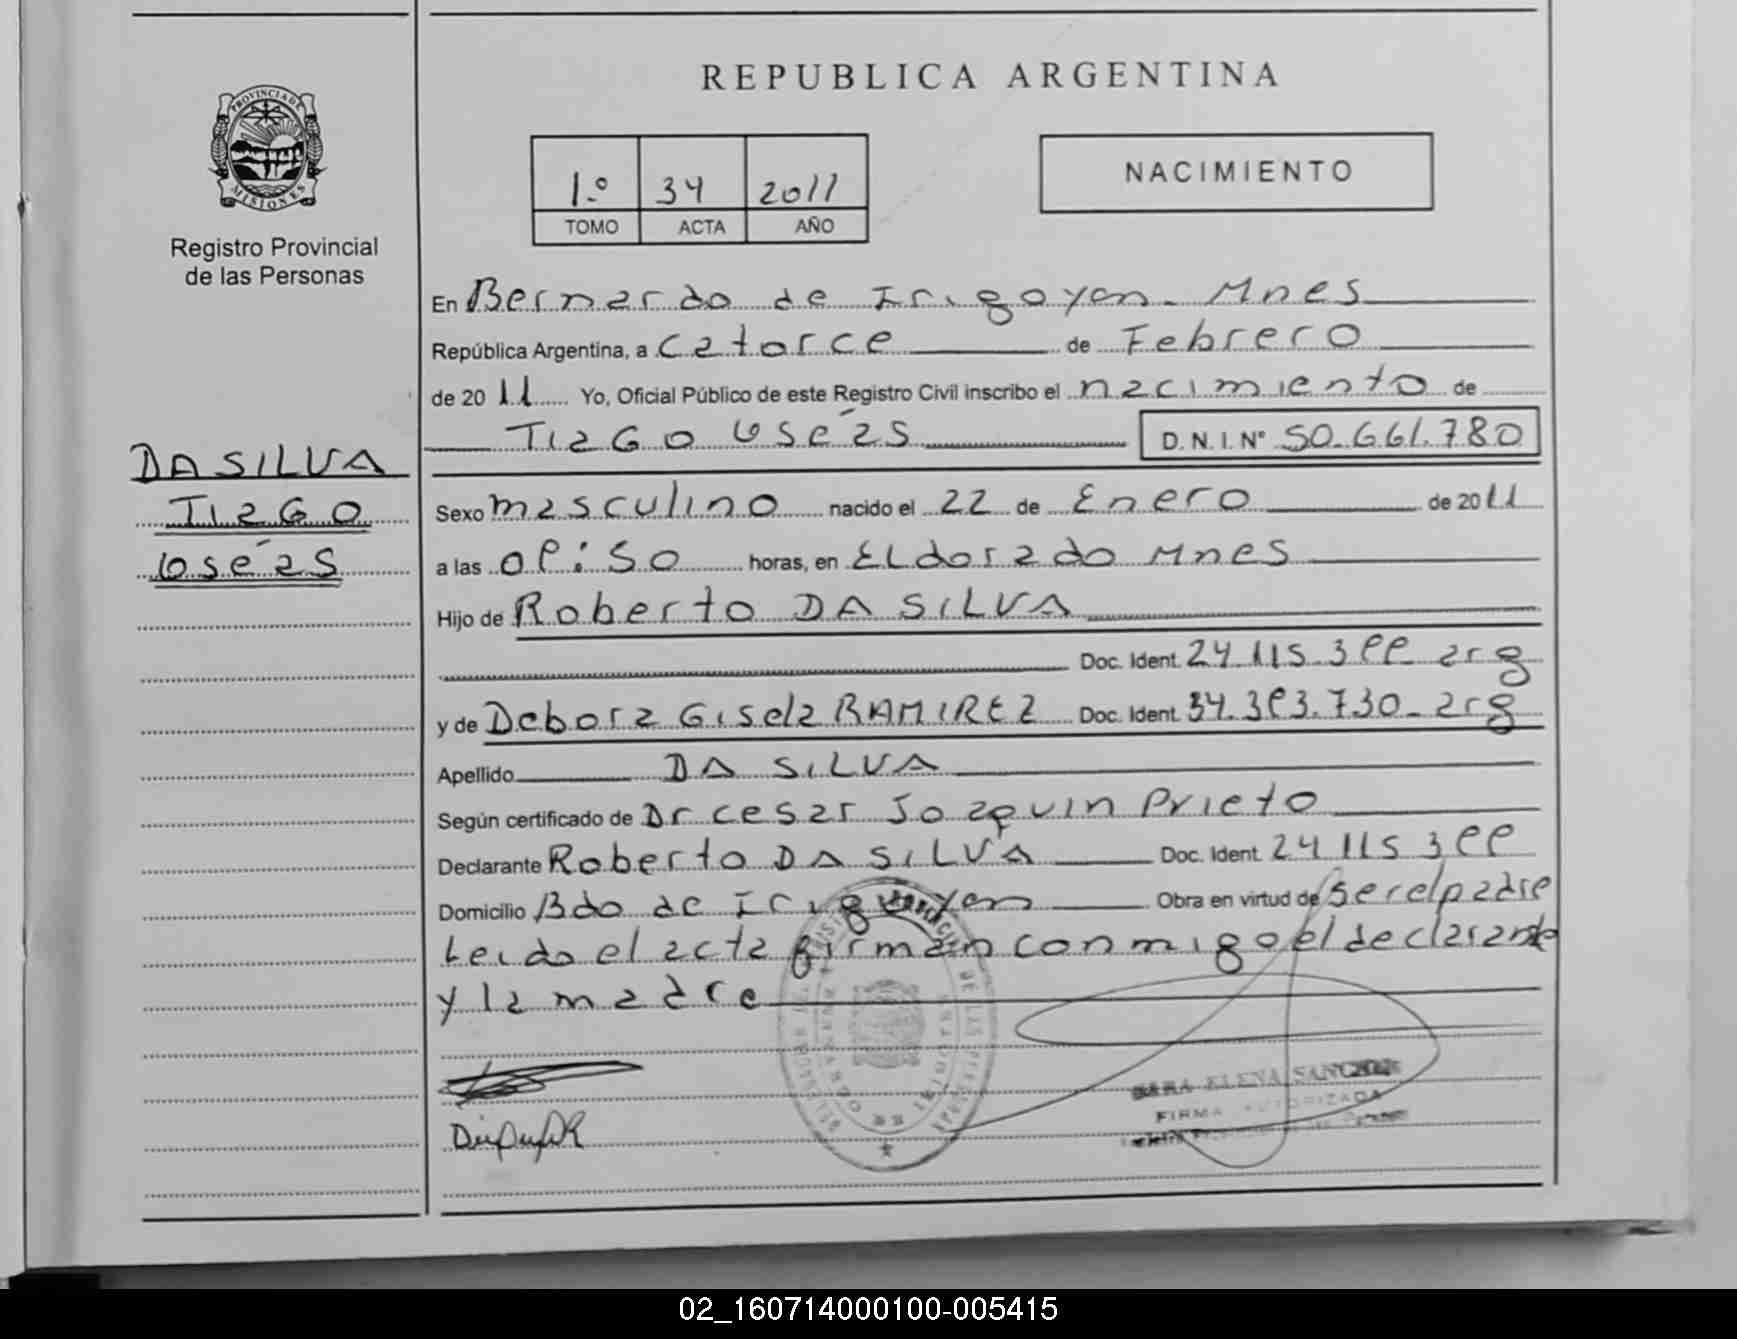 REPUBLICA ARGENTINA
PROVINCIA DE MISIONES
Registro Provincial
de las Personas
1.º 34 2011
TOMO ACTA AÑO
NACIMIENTO
En Bernardo de Irigoyen - Mnes
República Argentina, a catorce de Febrero
de 2011 Yo, Oficial Público de este Registro Civil inscribo el nacimiento de
Tiago Oséas D. N. I. Nº 50.661.780
DA SILVA
Tiago
Oséas
Sexo masculino nacido el 22 de Enero de 2011
a las 08:50 horas, en Eldorado Mnes
Hijo de Roberto DA SILVA
Doc. Ident. 24 115 388 arg
y de Debora Gisela RAMIREZ Doc. Ident. 34.383.730 - arg
Apellido DA SILVA
Según certificado de Dr cesar Joaquin Prieto
Declarante Roberto DA SILVA Doc. Ident. 24 115 388
Domicilio Bdo de Irigoyen Obra en virtud de ser el padre
Leido el acta firman conmigo el declarante
y la madre
ELENA SANCHEZ
FIRMA AUTORIZADA
02_160714000100-005415